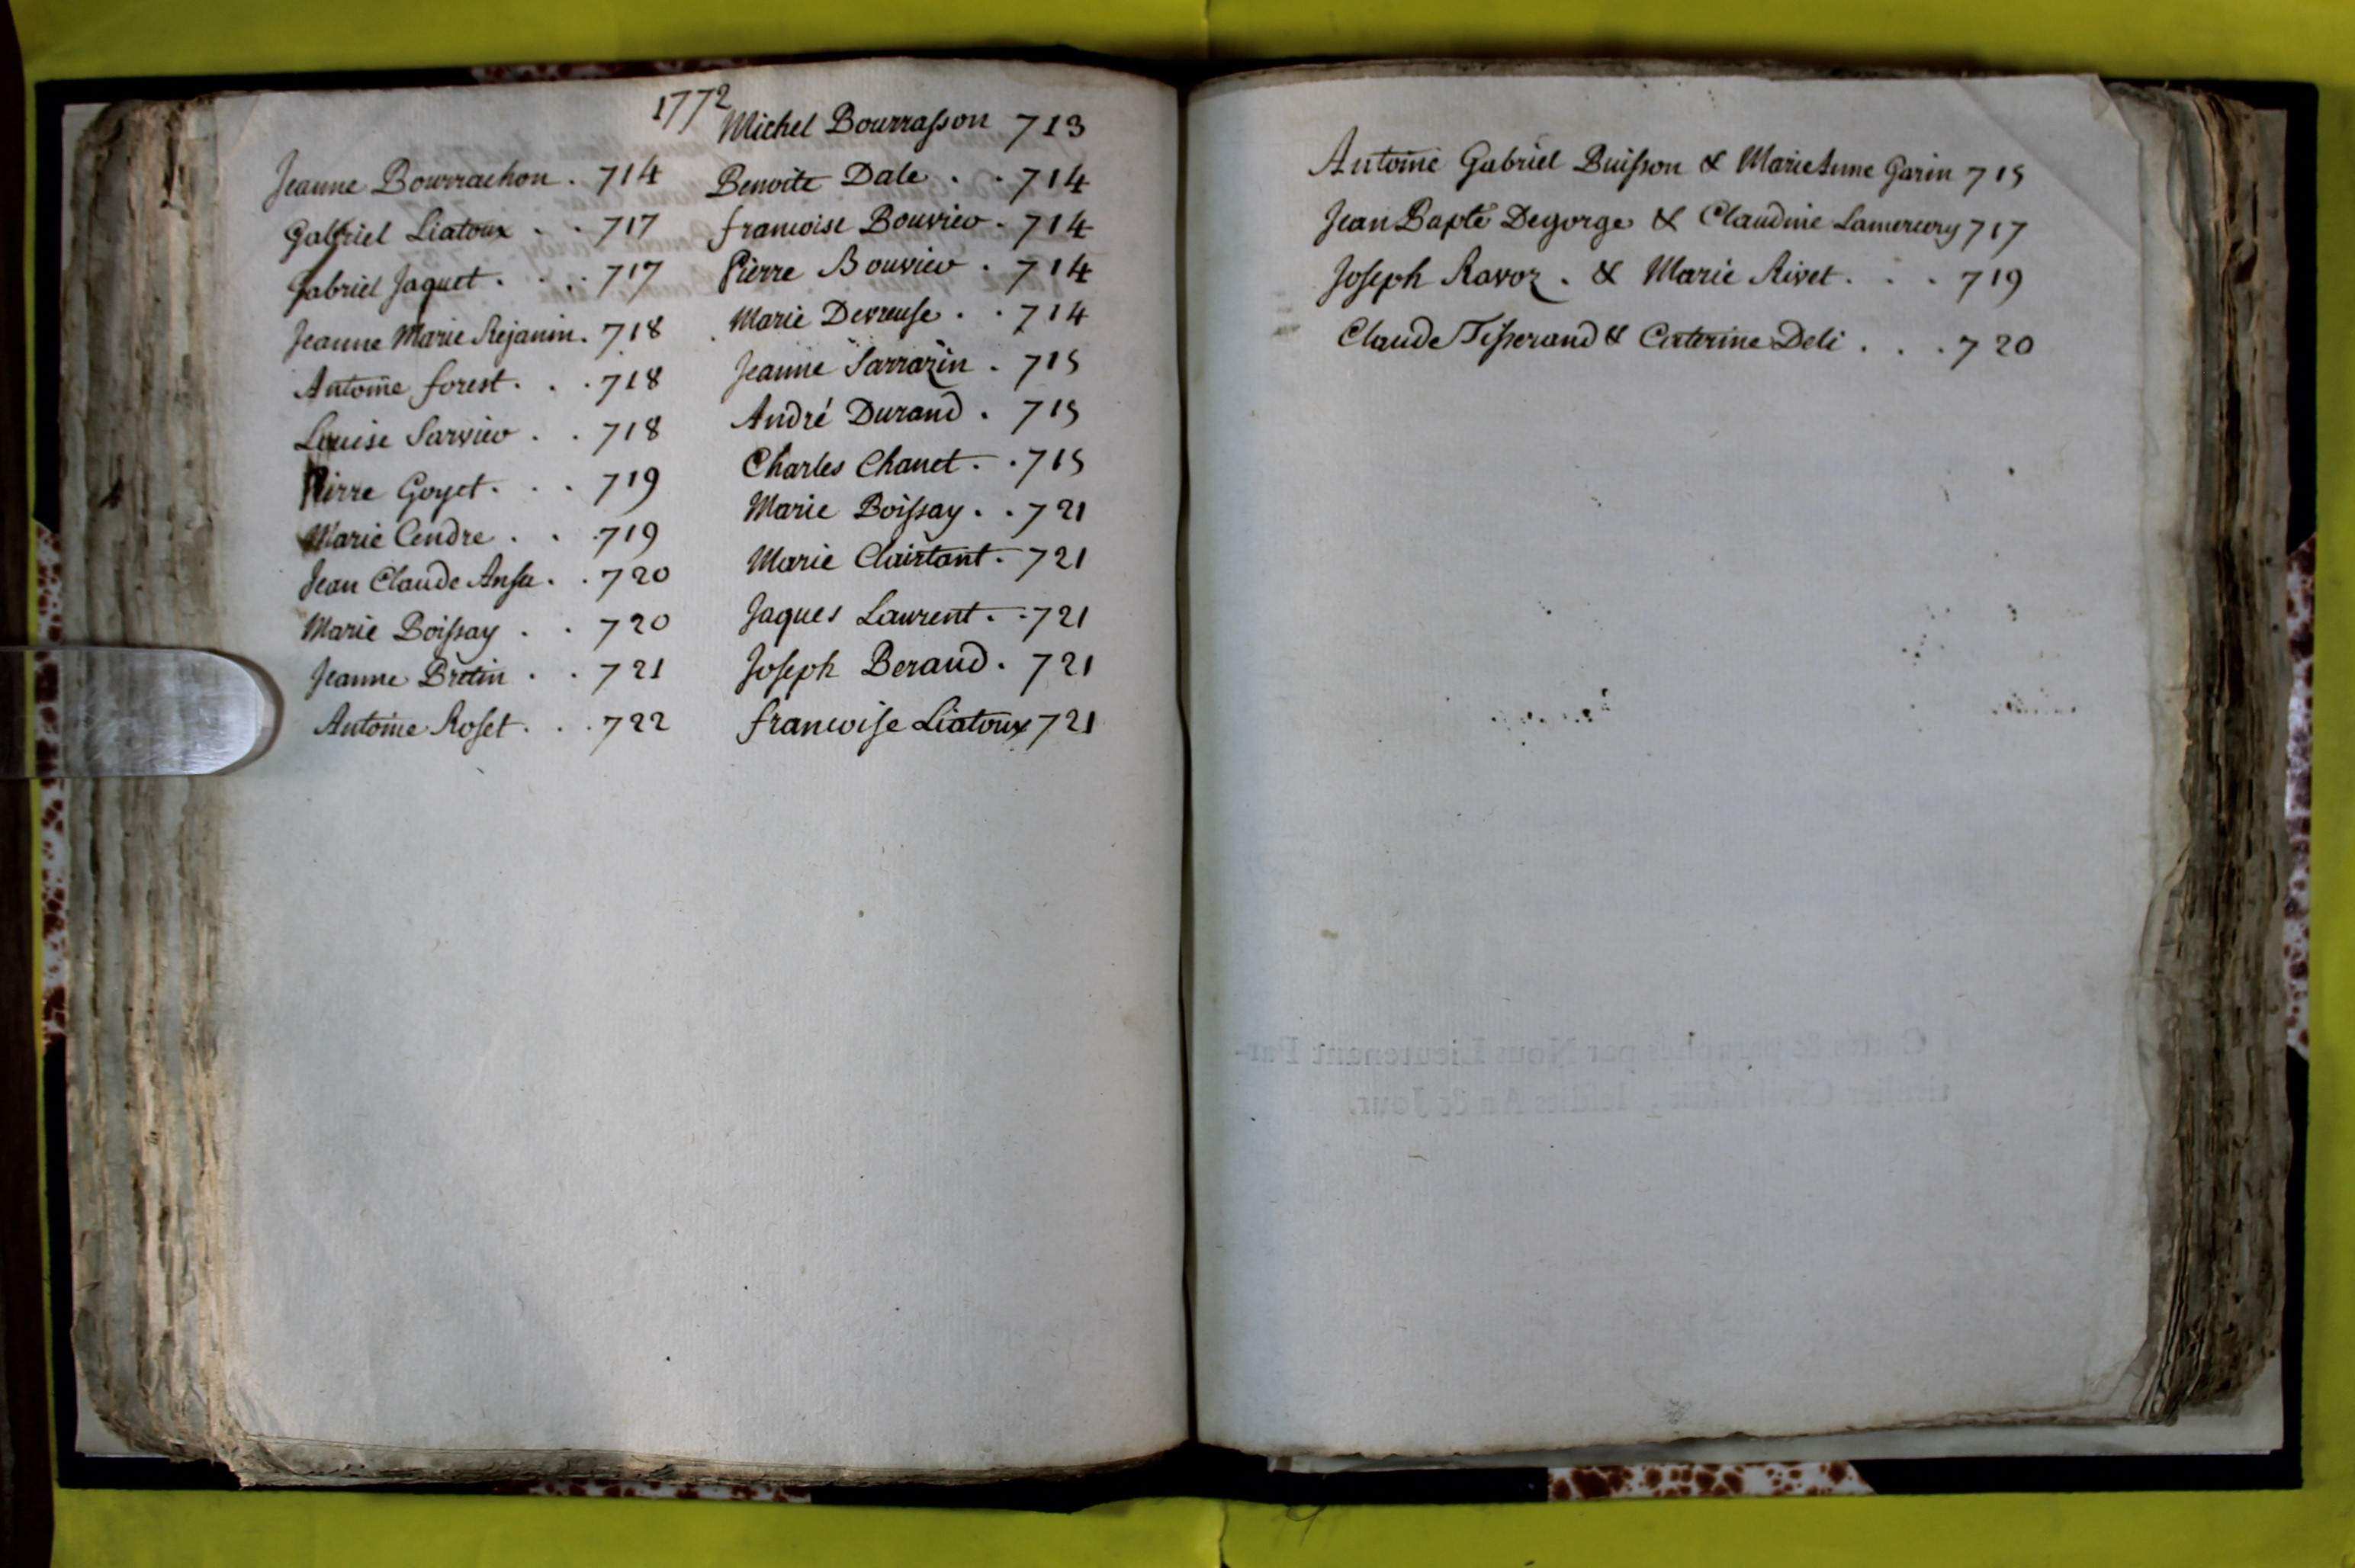 1772
Jeanne Bourrachon . 714
Gabriel Liatoux . . 717
Gabriel Jaquet . . . 717
Jeanne Marie Rejanin . 718
Antoine forest . . . 718
Louise Sarvier . . 718
Pierre Goyet . . . 719
Marie Cendre . . . 719
Jean Claude . . 720
Marie Boissay . . 720
Jeanne Bretin . . 721
Antoine Roset . . . 722
Michel Bourrasson 713
Benoite Dale . . 714
francoise Bouvier . 714
Pierre Bouvier . 714
Marie Devreuse . . 714
Jeanne Sarrazin . 715
André Durand . 715
Charles Chanet . . 715
Marie Boissay . . 721
Marie Clairtant . 721
Jaques Laurent . . 721
Joseph Beraud . 721
francoise Liatoux 721
Antoine Gabriel Buisson & Marie Anne Garin 715
Jean Bapte Degorge & Claudine Lamercery 717
Joseph Ravoz . & Marie Rivet . . . 719
Claude Tisserand & Caterine Deli . . . 720